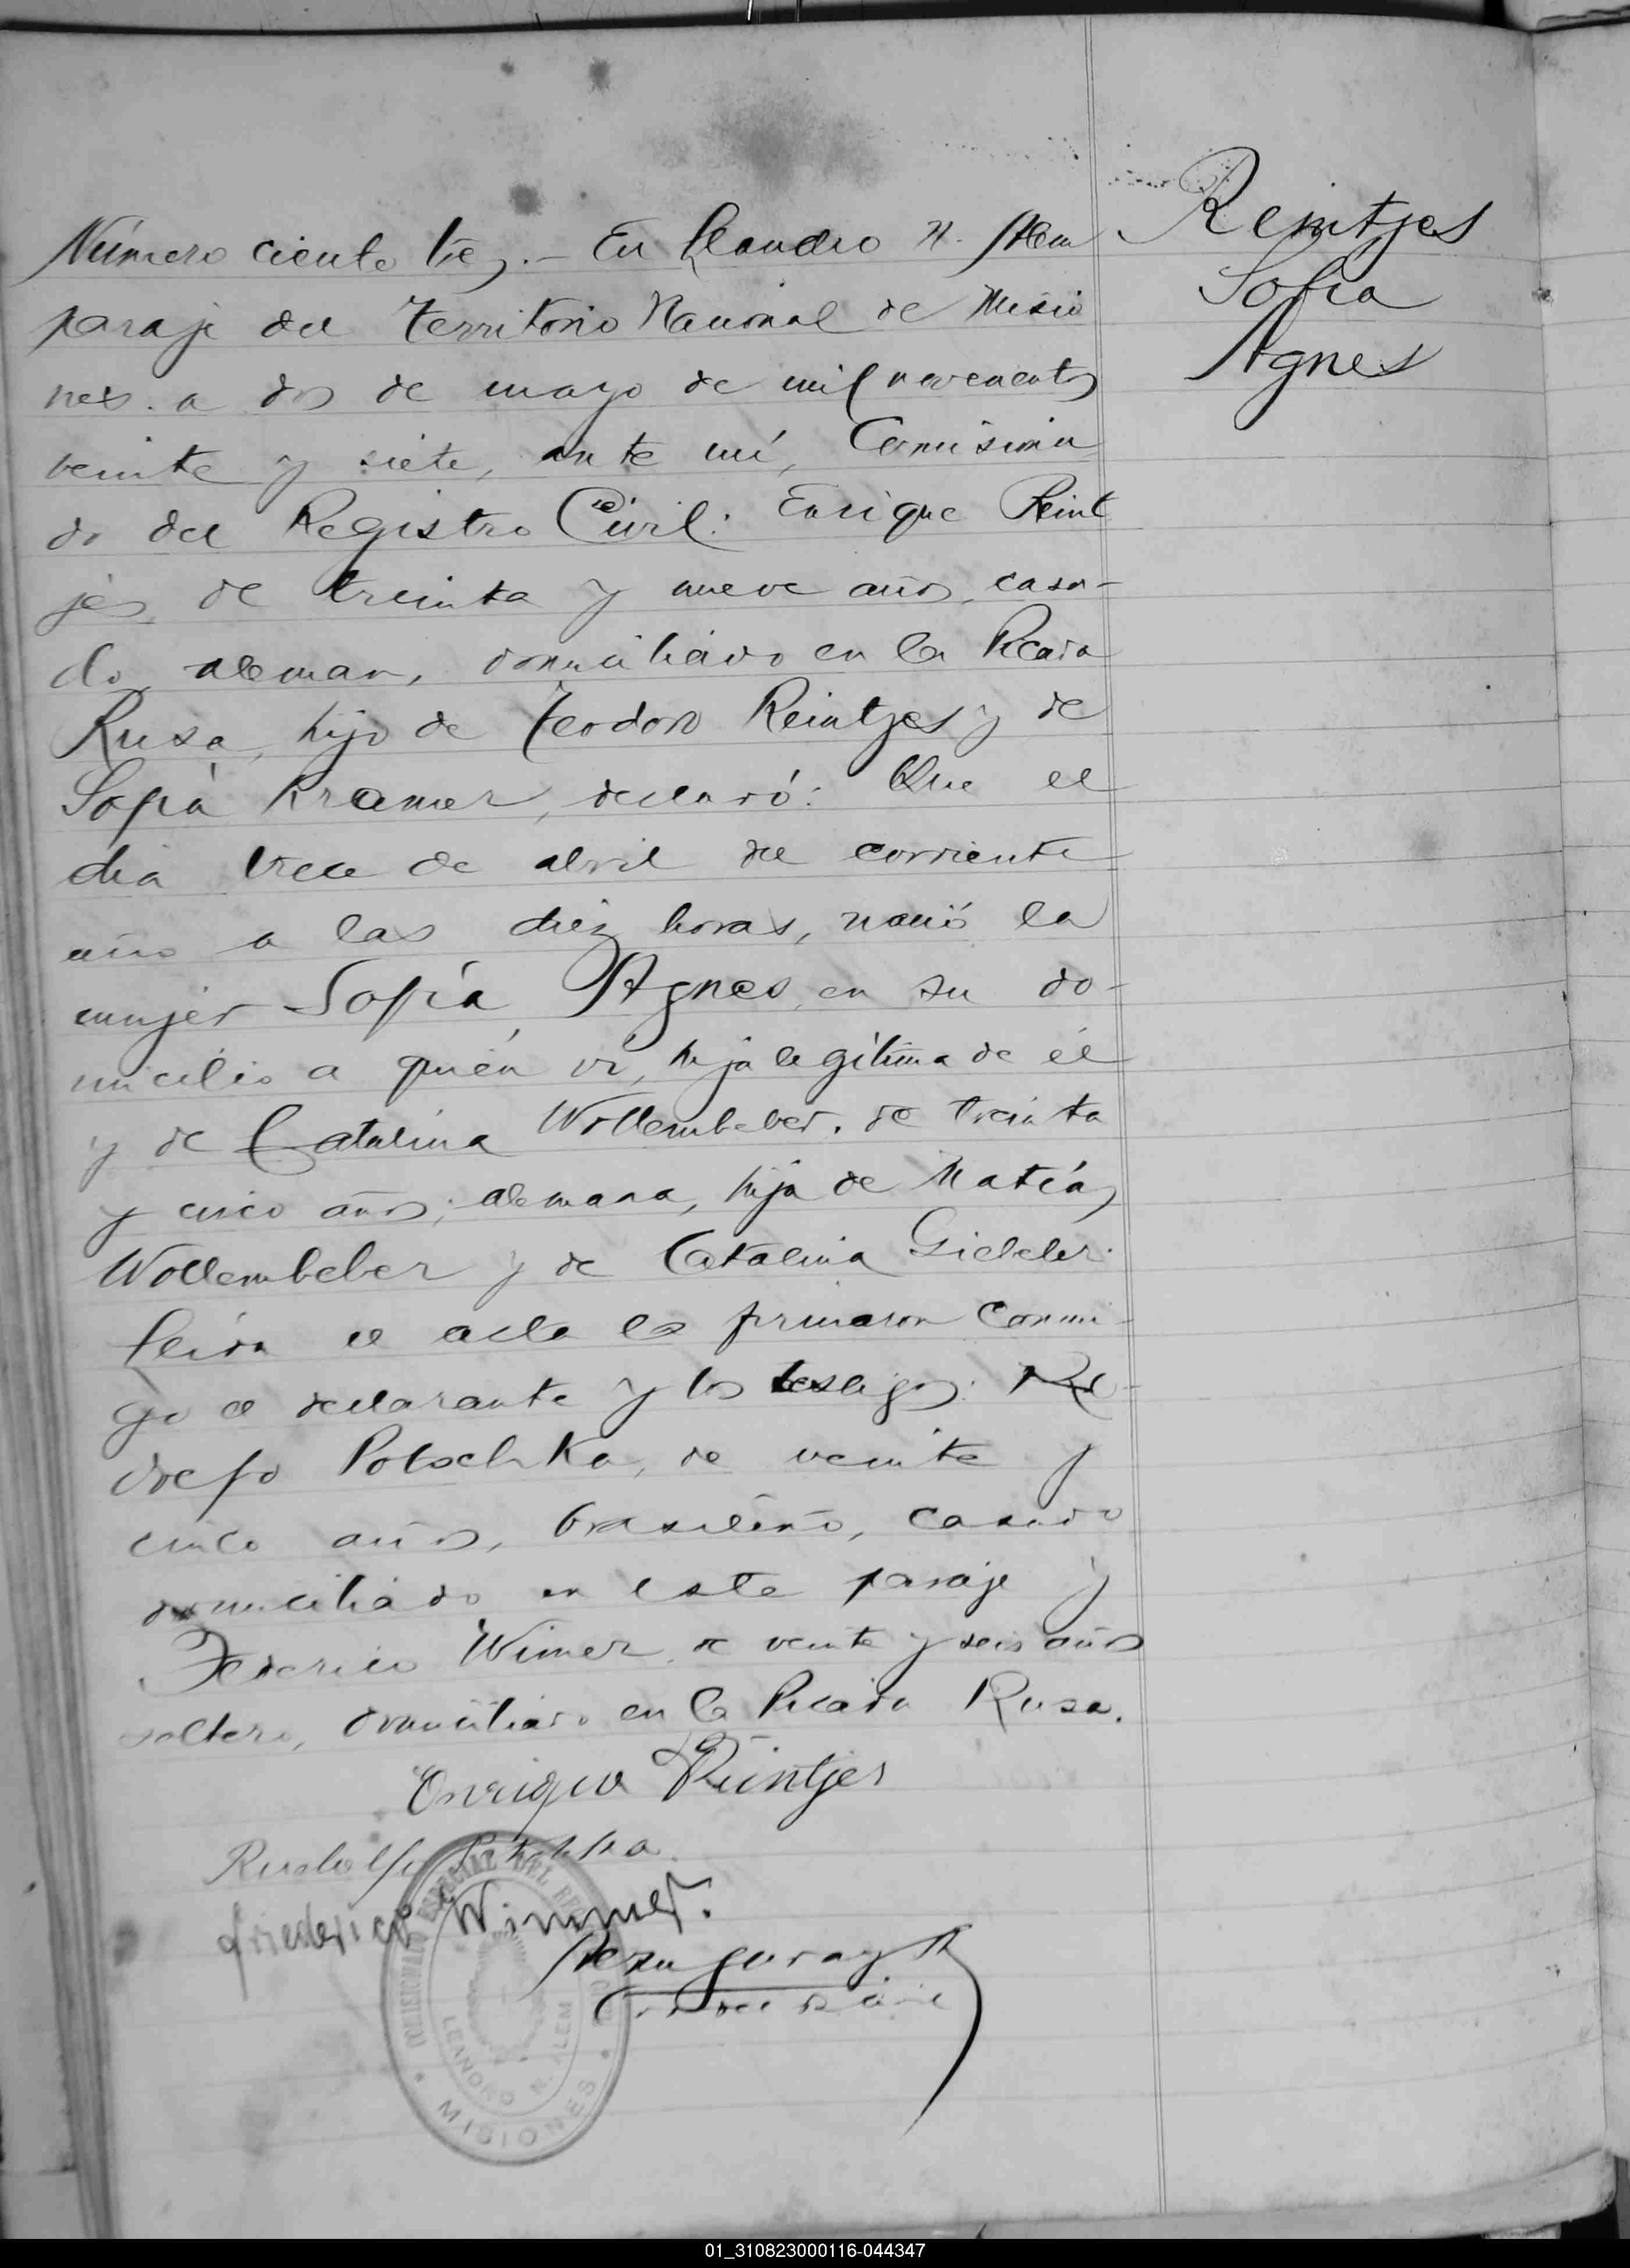 Reintjes
Sofia
Agnes
Número ciento tres.- En Leandro N. Alem
paraje del Territorio Nacional de Misio
nes. a dos de mayo de mil novecientos
veinte y siete, ante mí, Comisiona
do del Registro Civil: Enrique Reint
jes, de treinta y nueve años, casa-
do, aleman, domiciliado en la Picada
Rusa, hijo de Teodoro Reintjes y de
Sofía Kramer, declaró: Que el
dia trece de abril del corriente
año a las diez horas, nació la
mujer Sofía Agnes, en su do-
micilio a quién ví, hija legítima de él
y de Catalina Wollembeber, de treinta
y cinco años, alemana, hija de Matías
Wollembeber y de Catalina Giebeler.
Leida el acta la firmaron conmi-
go el declarante y los testigos: Ro-
dolfo Potschka, de veinte y
cinco años, brasileño, casado
domiciliado en este paraje y
Federico Wimer, de veinte y seis años
soltero, domiciliado en la Picada Rusa.
Enrique Reintjes
Rudolfo Potschka
Friederico Wimmer.
COMISIONADO ESPECIAL DEL
LEANDRO N. ALEM
MISIONES
01_310823000116-044347